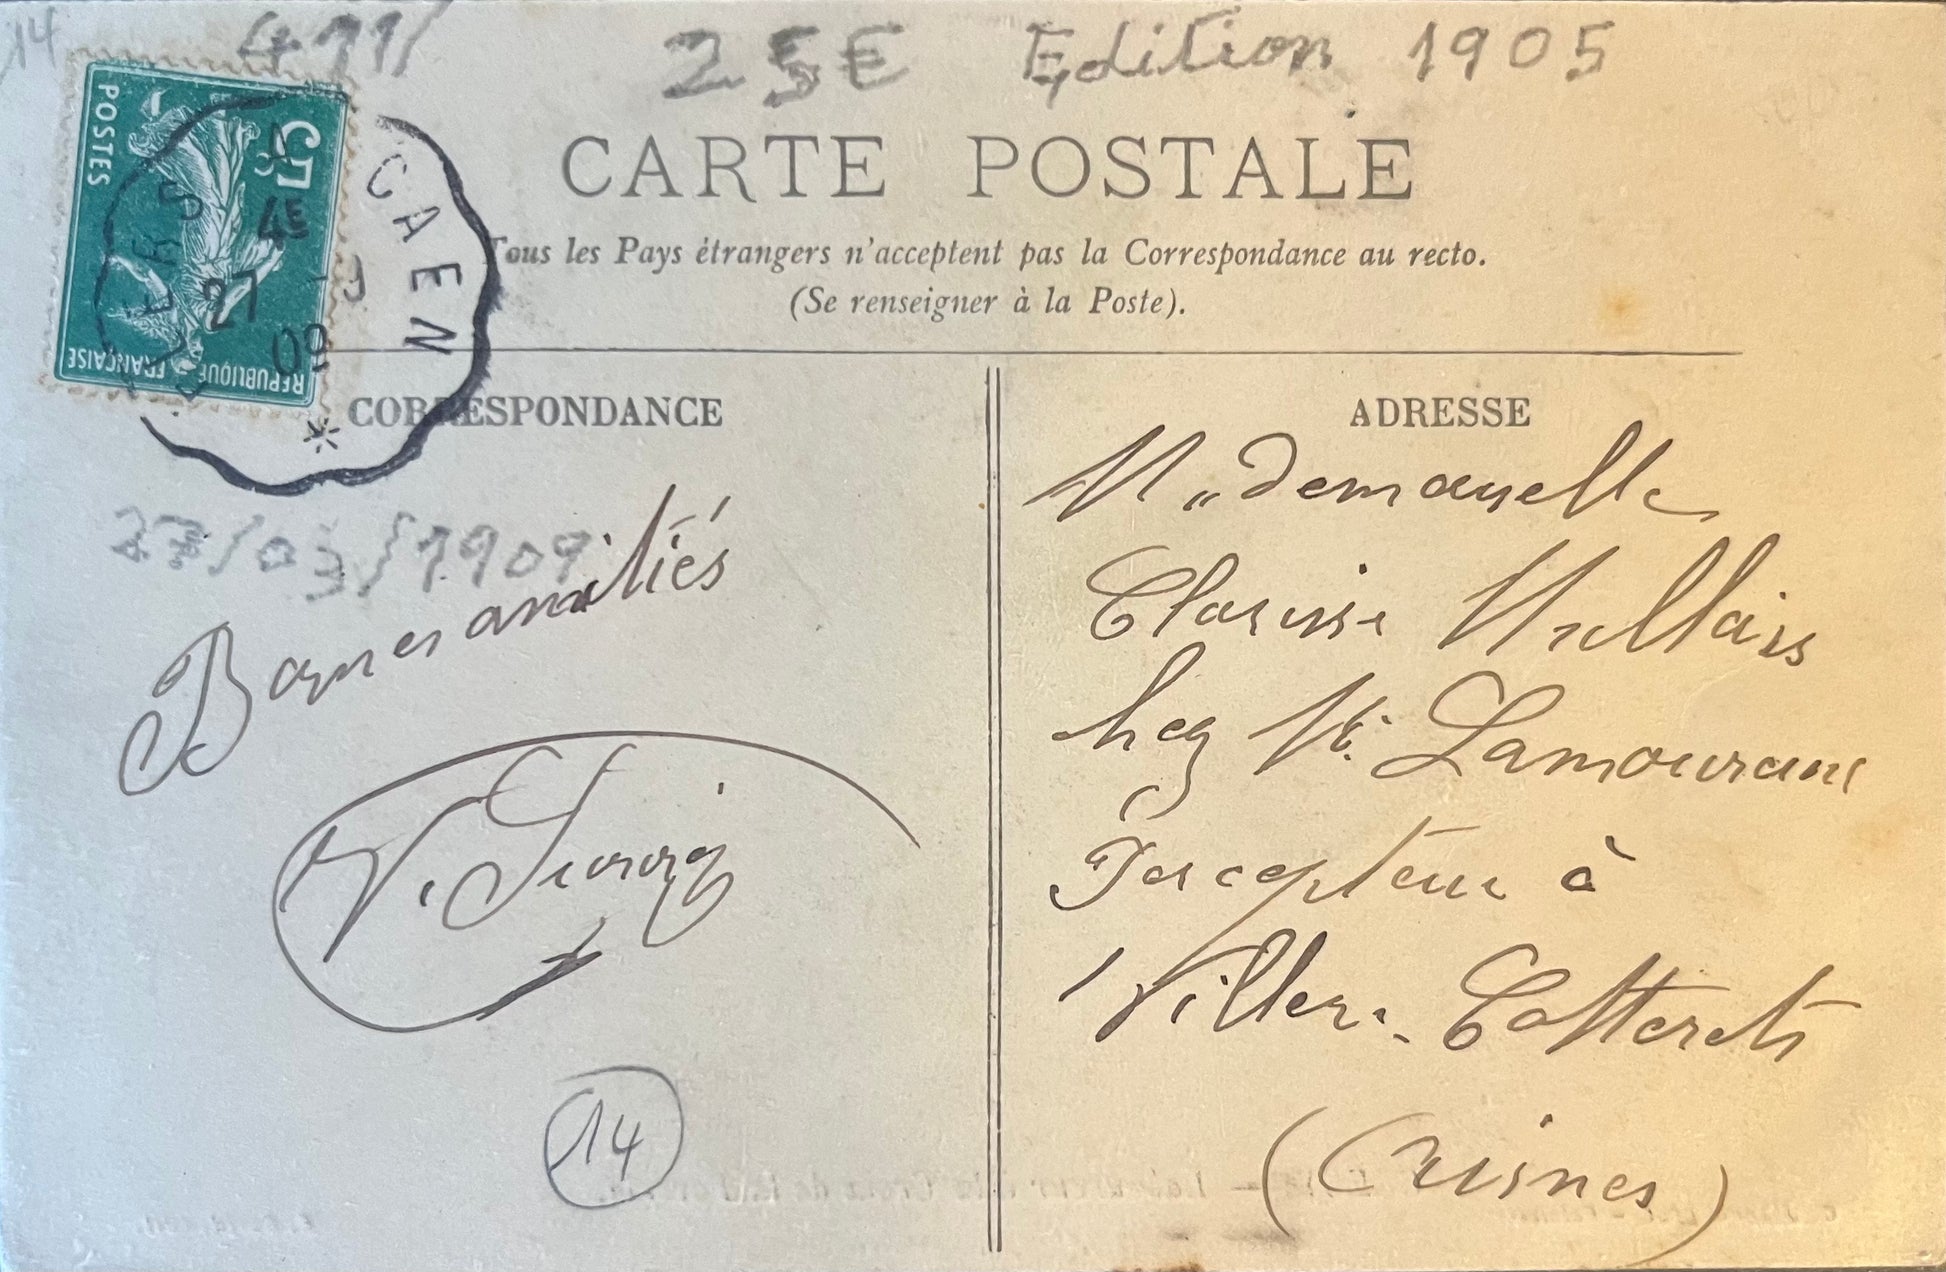 14
25€ Edition 1905
CARTE POSTALE
Tous les Pays étrangers n'acceptent pas la Correspondance au recto.
(Se renseigner à la Poste).
POSTES
5c
REPUBLIQUE FRANÇAISE
CAEN
4E
27 - 3
09
CORRESPONDANCE
27/03/1909
Bonnes amitiés
V.
14
ADRESSE
Mademoiselle
Clarisse
chez Mr
Percepteur à
Villers-Cotterets
(Aisnes)